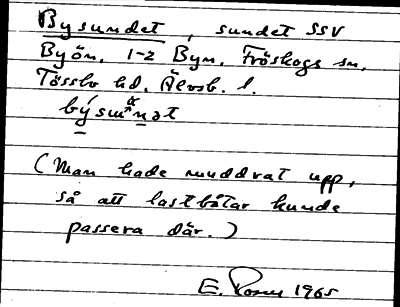 Bysundet, sundet SSV
Byön, 1-2 Byn, Fröskogs sn,
Tössbo hd, Älvsb. l.
(Man hade muddrat upp,
så att lastbåtar kunde
passera där.)
E. 1965